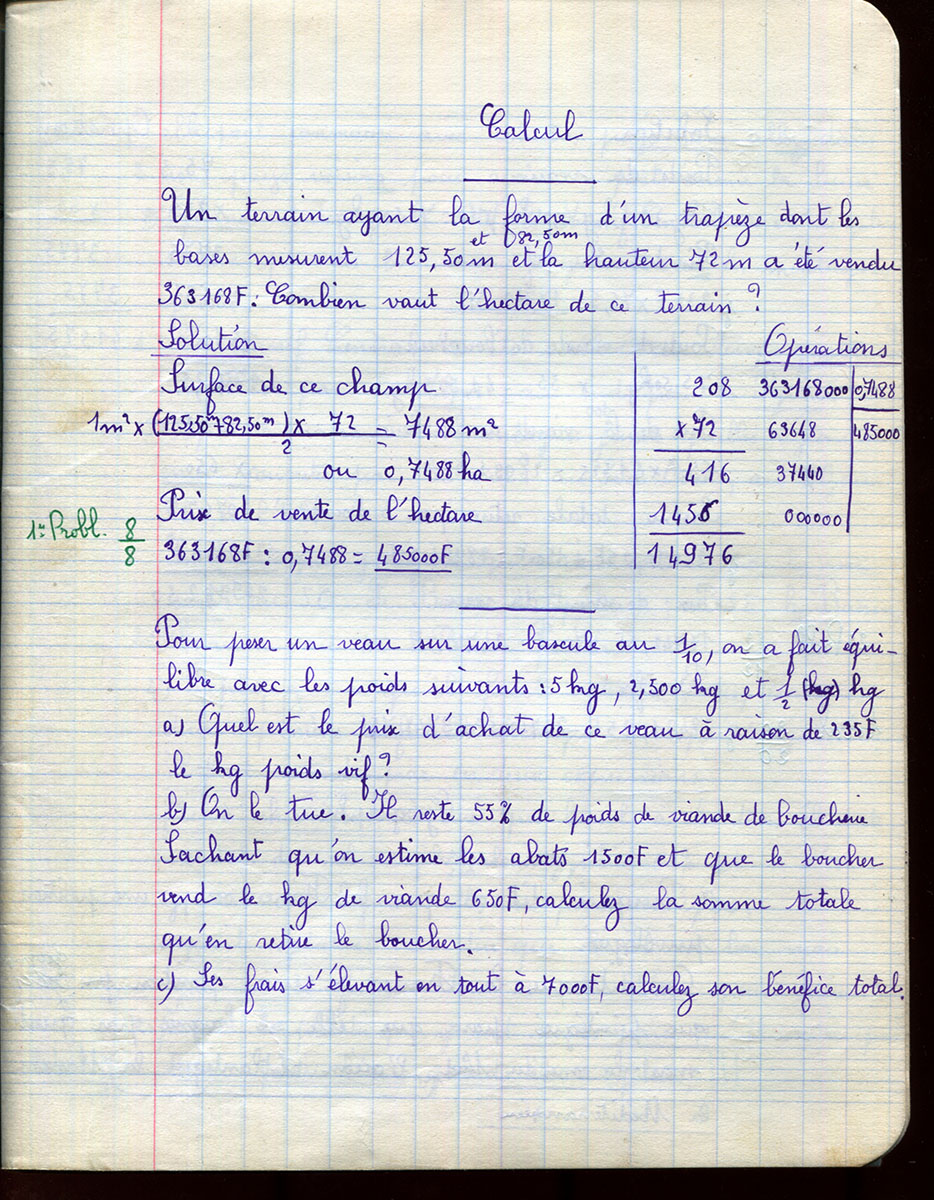 Calcul
Un terrain ayant la forme d'un trapèze dont les
et 82,50m
bases mesurent 125,50m et la hauteur 72m a été vendu
363168F. Combien vaut l'hectare de ce terrain ?
Solution
Opérations
Surface de ce champ
1m² x (125,50m+82,50m) x 72 = 7488 m²
2
ou 0,7488 ha
Prix de vente de l'hectare
363168F : 0,7488 = 485000F
208 363168000 0,7488
x72 63648 485000
416 37440
1456 000000
14976
1er Probl. 8
8
Pour peser un veau sur une bascule au 1/10, on a fait équi-
libre avec les poids suivants : 5 kg, 2,500 kg et 1/2 (kg) kg
a) Quel est le prix d'achat de ce veau à raison de 235F
le kg poids vif ?
b) On le tue. Il reste 55% de poids de viande de boucherie
Sachant qu'on estime les abats 1500F et que le boucher
vend le kg de viande 650F, calculez la somme totale
qu'en retire le boucher.
c) Ses frais s'élevant en tout à 7000F, calculez son bénéfice total.